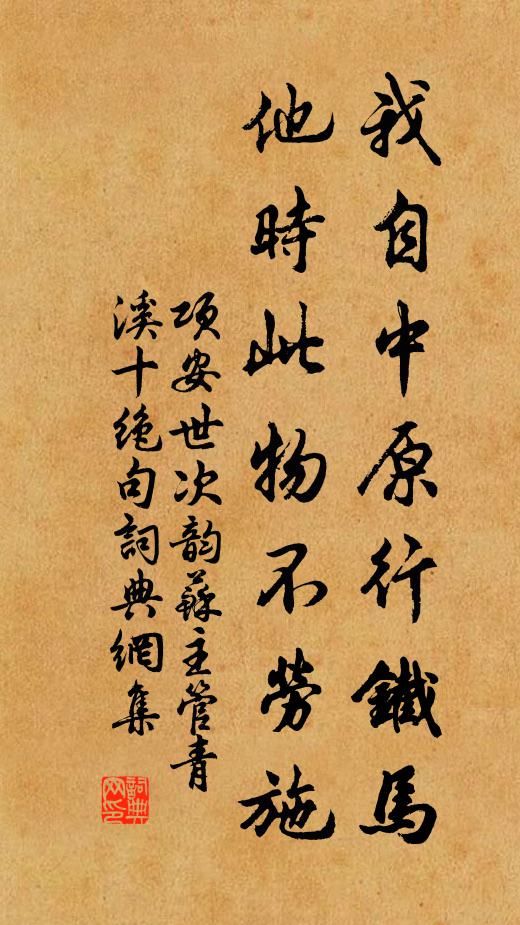 我自中原行鐵馬
他時此物不勞施
項安世次韵蘇主管青
溪十絶句詞典網集
詞典
网印